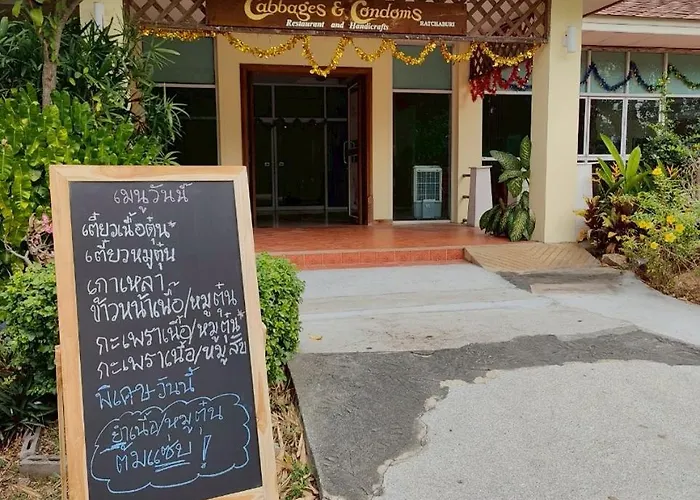 Cabbages & Condoms
Restaurant and Handicrafts RATCHABURI
เมนูวันนี้
เตี๋ยวเนื้อตุ๋น*
เตี๋ยวหมูตุ๋น
เกาเหลา
ข้าวหน้าเนื้อ/หมูตุ๋น
กะเพราเนื้อ/หมูตุ๋น*
กะเพราเนื้อ/หมูสับ
พิเศษวันนี้
ยำเนื้อ/หมูตุ๋น
ต้มแซ่บ!